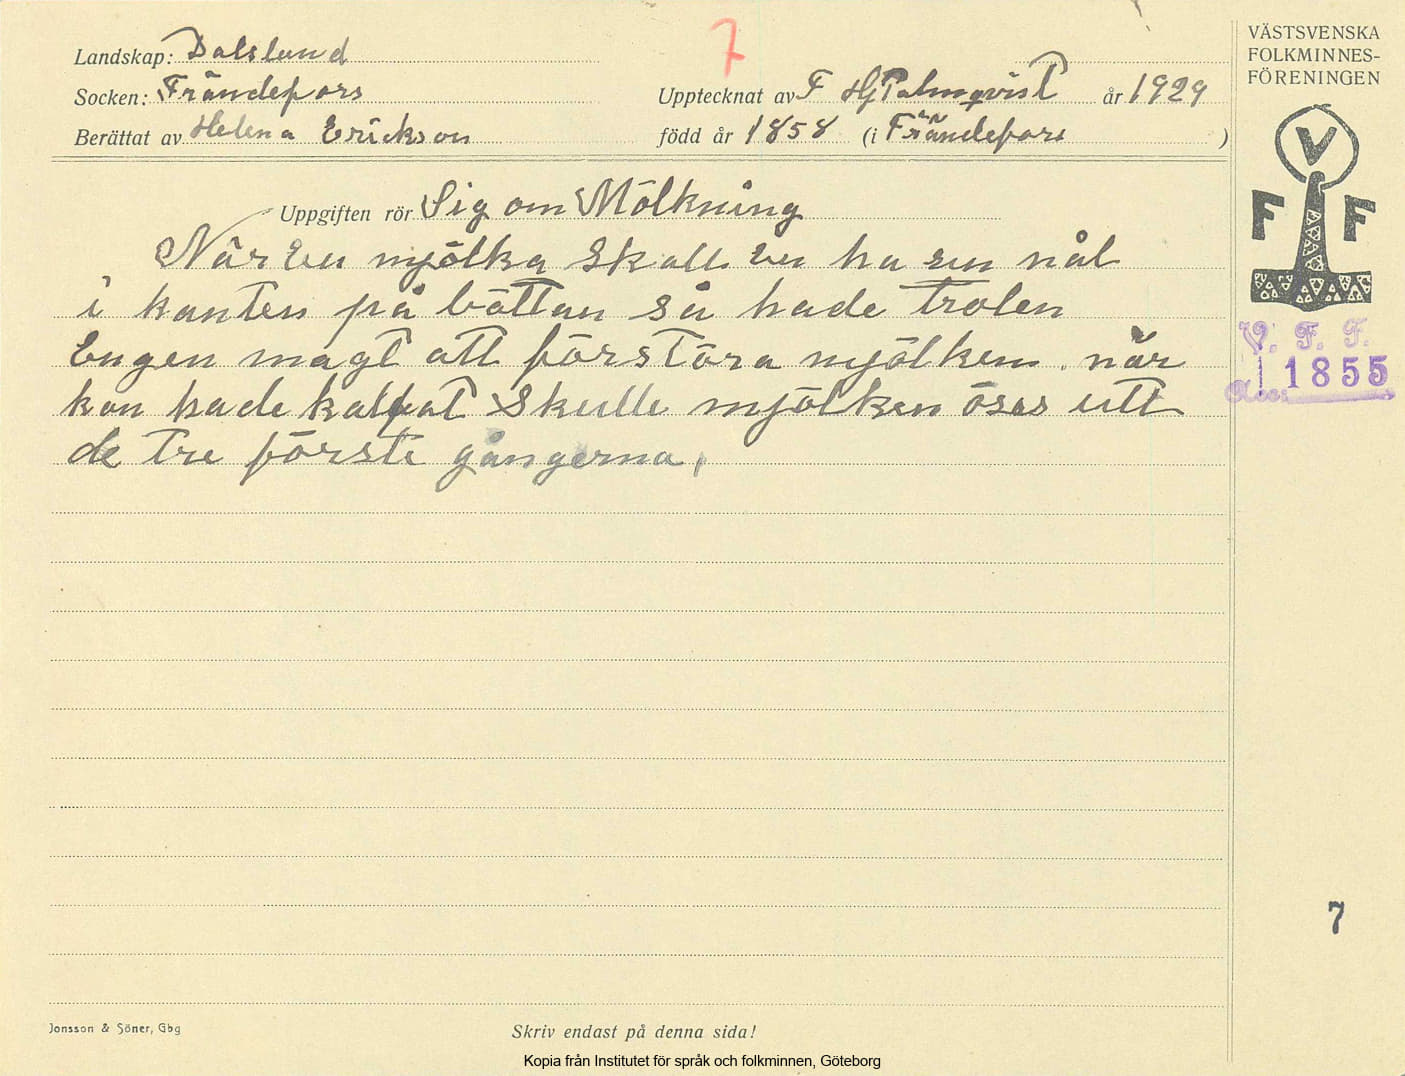 Landskap: Dalsland
Socken: Frändefors
Berättat av Helena Erickson
7
Upptecknat av F Hj Palmqvist år 1929
född år 1858 (i Frändefors )
VÄSTSVENSKA
FOLKMINNES-
FÖRENINGEN
V
F F
V. F. F.
1855
Uppgiften rör Sig om Mölkning
När en mjölka skall en ha en nål
i kanten på böttan så hade trolen
Engen magt att förstöra mjölken. når
kon hade kalfat skulle mjölken ösas utt
de tre förste gångerna,
7
Jonsson & Söner, Gbg
Skriv endast på denna sida!
Kopia från Institutet för språk och folkminnen, Göteborg